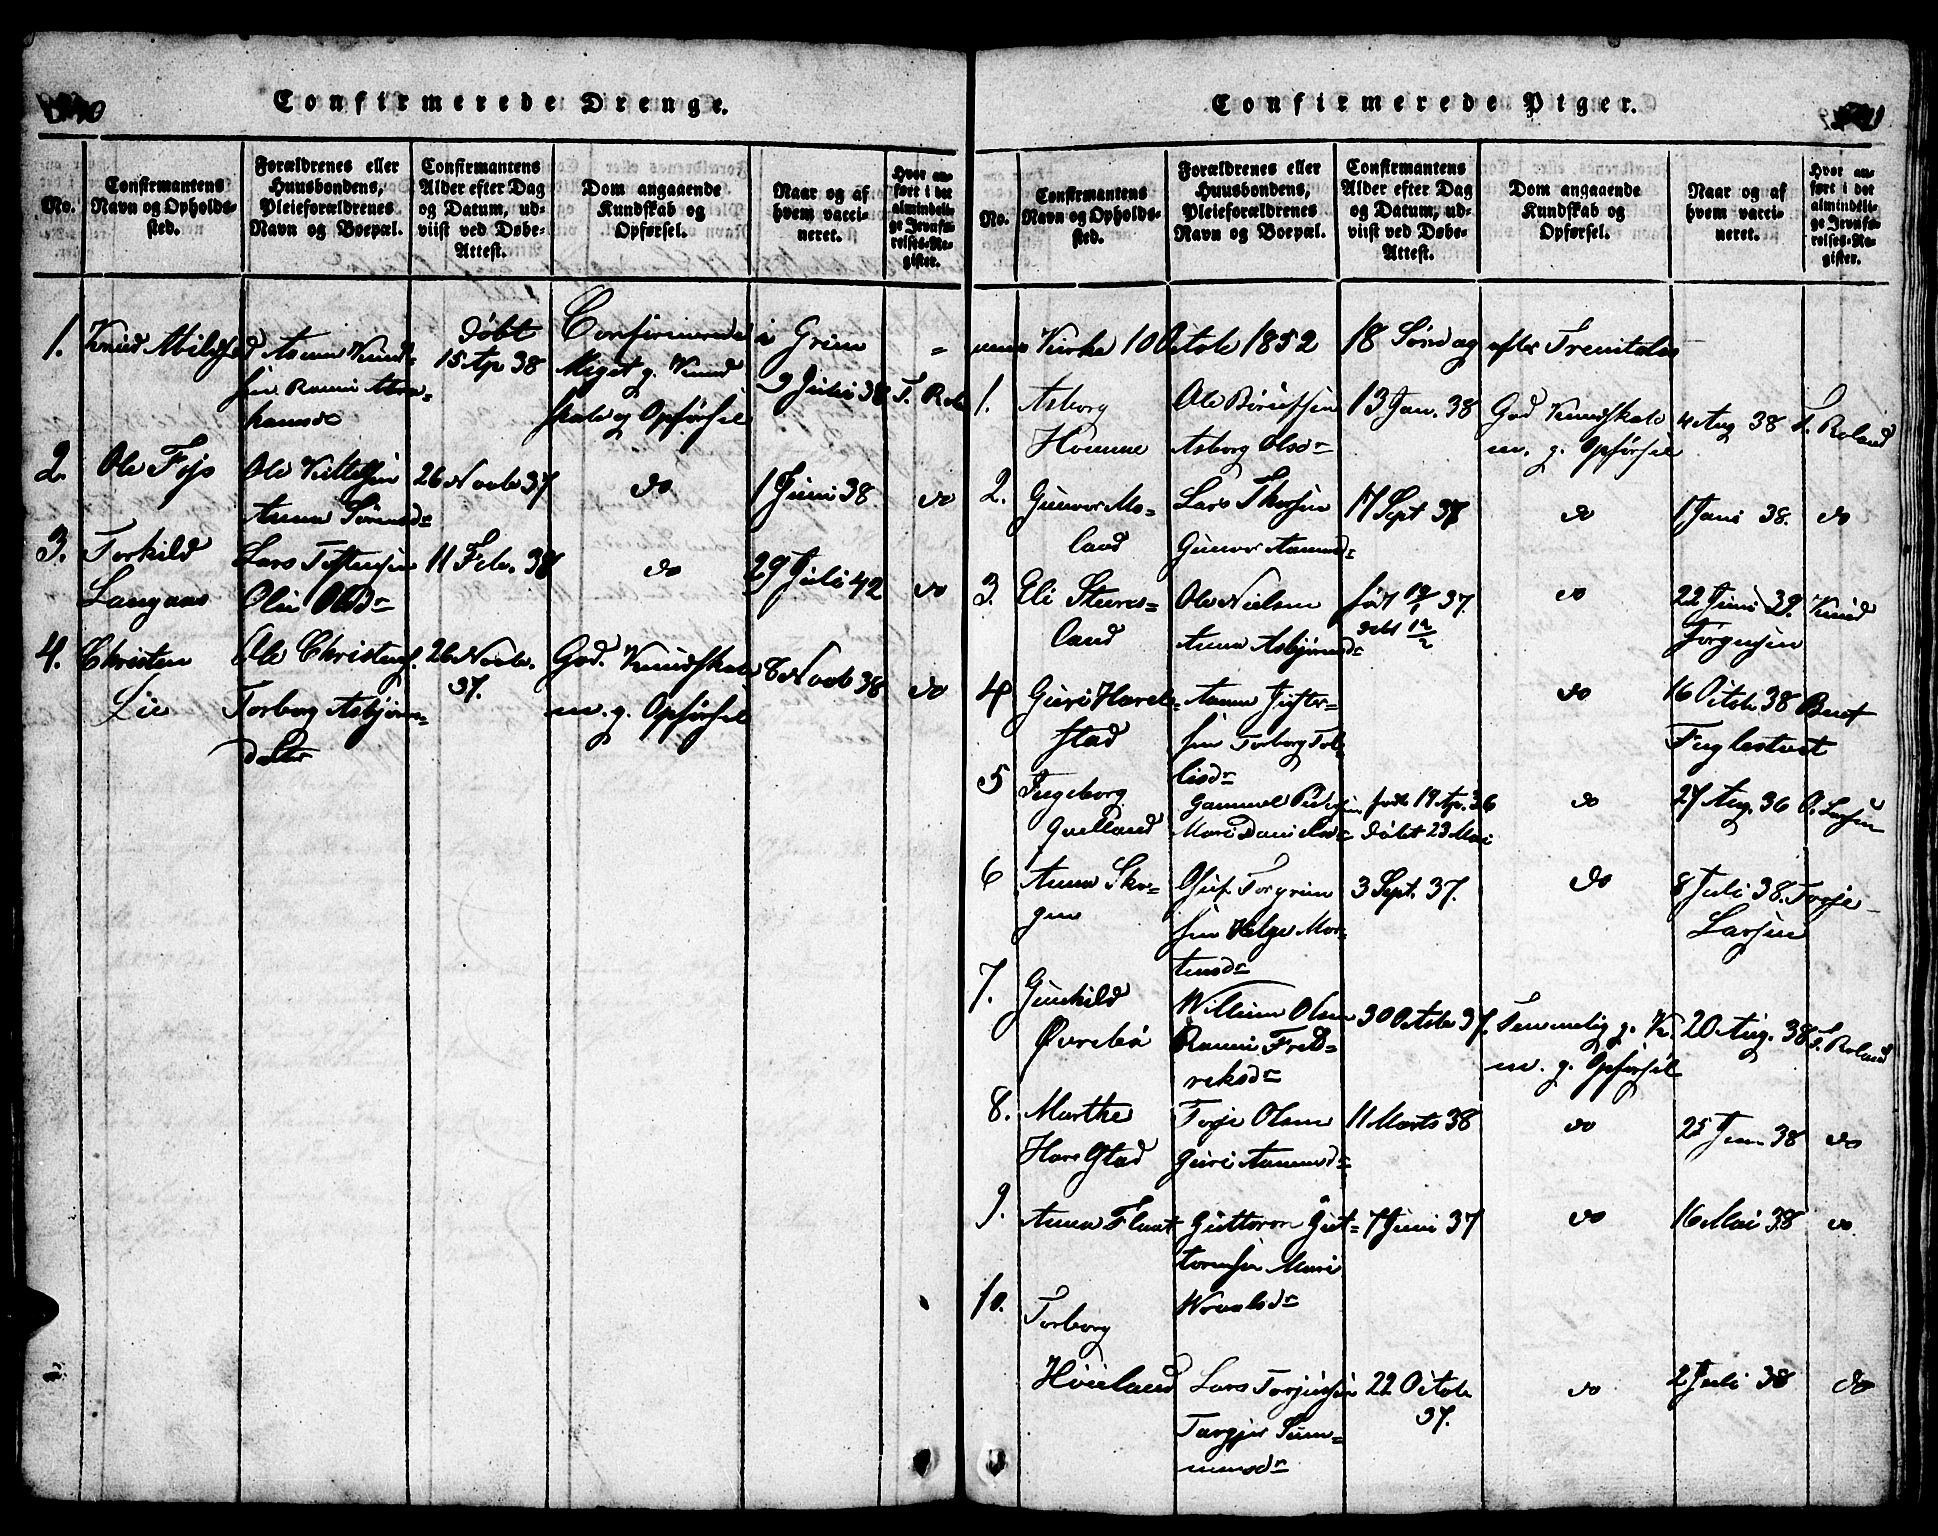 Confirmerede Drenge.
No.
Confirmantens
Navn og Opholds-
sted.
Forældrenes eller
Huusbondens,
Pleieforældrenes
Navn og Boepæl.
Confirmantens
Alder efter Dag
og Datum, ud-
viist ved Døbe-
Attest.
Dom angaaende
Kundskab og
Opførsel.
Naar og af
hvem vacci-
neret.
Hvor an-
ført i det
almindeli-
ge Jevnfø-
relses-Re-
gister.
Confirmerede i Grim
1.
Knud
Aanen Knud-
døbt
15 Ap 38
Meget g. Kund
skab og Opførsel
9 Juli 38
T. Rol
2.
Ole
Ole Kittelsen
Anna Sørensdr
26 Novb 37
do
1 Juni 38.
do
3.
Torkild
Langaas
Lars
Olin Olsdr
11 Feb. 38
do
29 Juli 42
do
4.
Christen
Lie
Ole Christens.
Torborg Asbjørns-
datter
26 Novb.
37.
God. Kundskab
m. g. Opførsel
8 Novb 38
do
Confirmerede Piger.
No.
Confirmantens
Navn og Opholds-
sted.
Forældrenes eller
Huusbondens,
Pleieforældrenes
Navn og Boepæl.
Confirmantens
Alder efter Dag
og Datum, ud-
viist ved Døbe-
Attest.
Dom angaaende
Kundskab og
Opførsel.
Naar og af
hvem vacci-
neret.
Hvor an-
ført i det
almindeli-
ge Jevnfø-
relses-Re-
gister.
Kirke 10 Octob 1852 18 Søndag efter Trenitatis
1.
Asborg
Homme
Ole
Asborg Olsdr
13 Jan. 38
God Kundskab
m. g. Opførsel
4 Aug 38
T. Roland
2.
Gunvor Mo-
land
Lars
Gunvor Aanensdr
17 Sept 37
do
1 Juni 38.
do
3.
Eli Stures-
land
Ole Nielsen
Anna Asbjørnsdr
født 37.
do
22 Juni 39.
Knud
Jørgensen
4
Guri Harek-
stad
Aanen
sen Torborg Tol-
lisdr
do
16 Octob 38
Berut
Fuglestvet
5
Ingeborg
Qvelland
Gammel
Mari Danielsdr
født 19 Ap. 36
døbt 23 Mai
do
27 Aug. 36
O. Larsen
6
Anna Sko-
gen
Torgrim
sen Helge Mor-
tensdr
3 Sept. 37.
do
8 Juli 38.
Torje
Larsen
7.
Gunhild
Øvrebø
Willum Olsen
Ranni Fred-
riksdr
30 Octob 37.
Temmelig g. K.
m. g. Opførsel
20 Aug. 38
T. Roland
8.
Marthe
Harestad
Torje Olsen
Guri Aanensdr
11 Marts 38
do
25 Juni 38
do
9.
Anna Flaat
Guttorm Gut-
tormsen Mari
7 Juni 37
do
16 Mai 38
do.
10.
Torborg
Høieland
Lars Torjussen
22 Octob
37.
do
2 Juli 38
do